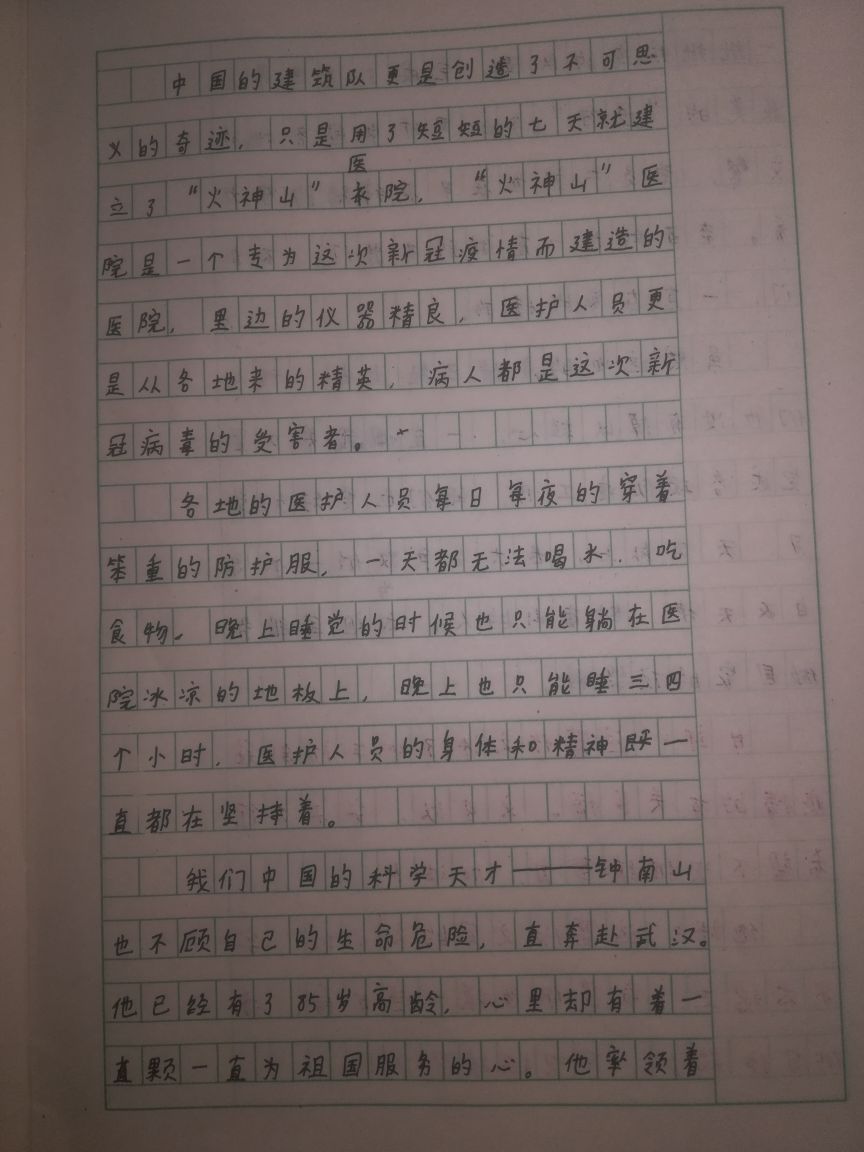 中国的建筑队更是创造了不可思
义的奇迹，只是用了短短的七天就建
医
立了“火神山”医院，“火神山”医
院是一个专为这次新冠疫情而建造的
医院，里边的仪器精良，医护人员更
是从各地来的精英，病人都是这次新
冠病毒的受害者。
各地的医护人员每日每夜的穿着
笨重的防护服，一天都无法喝水．吃
食物。晚上睡觉的时候也只能躺在医
院冰凉的地板上，晚上也只能睡三四
个小时．医护人员的身体和精神既一
直都在坚持着。
我们中国的科学天才——钟南山
也不顾自己的生命危险，直奔赴武汉。
他已经有了85岁高龄，心里却有着一
直颗一直为祖国服务的心。他率领着